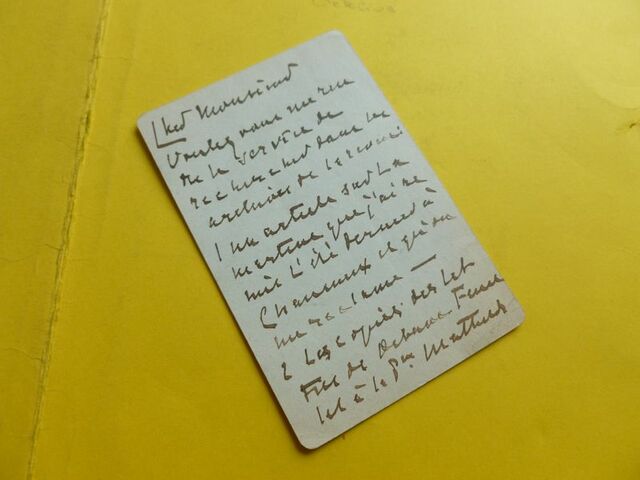 Cher Monsieur
Voulez vous me ren
dre le service de
rechercher dans les
archives de la revue:
1 un article sur La
martine que j'ai re
mis l'été dernier à
Chaumeix et qu'on
me réclame —
2 Les copies des let
tres de
à la Pss Mathilde